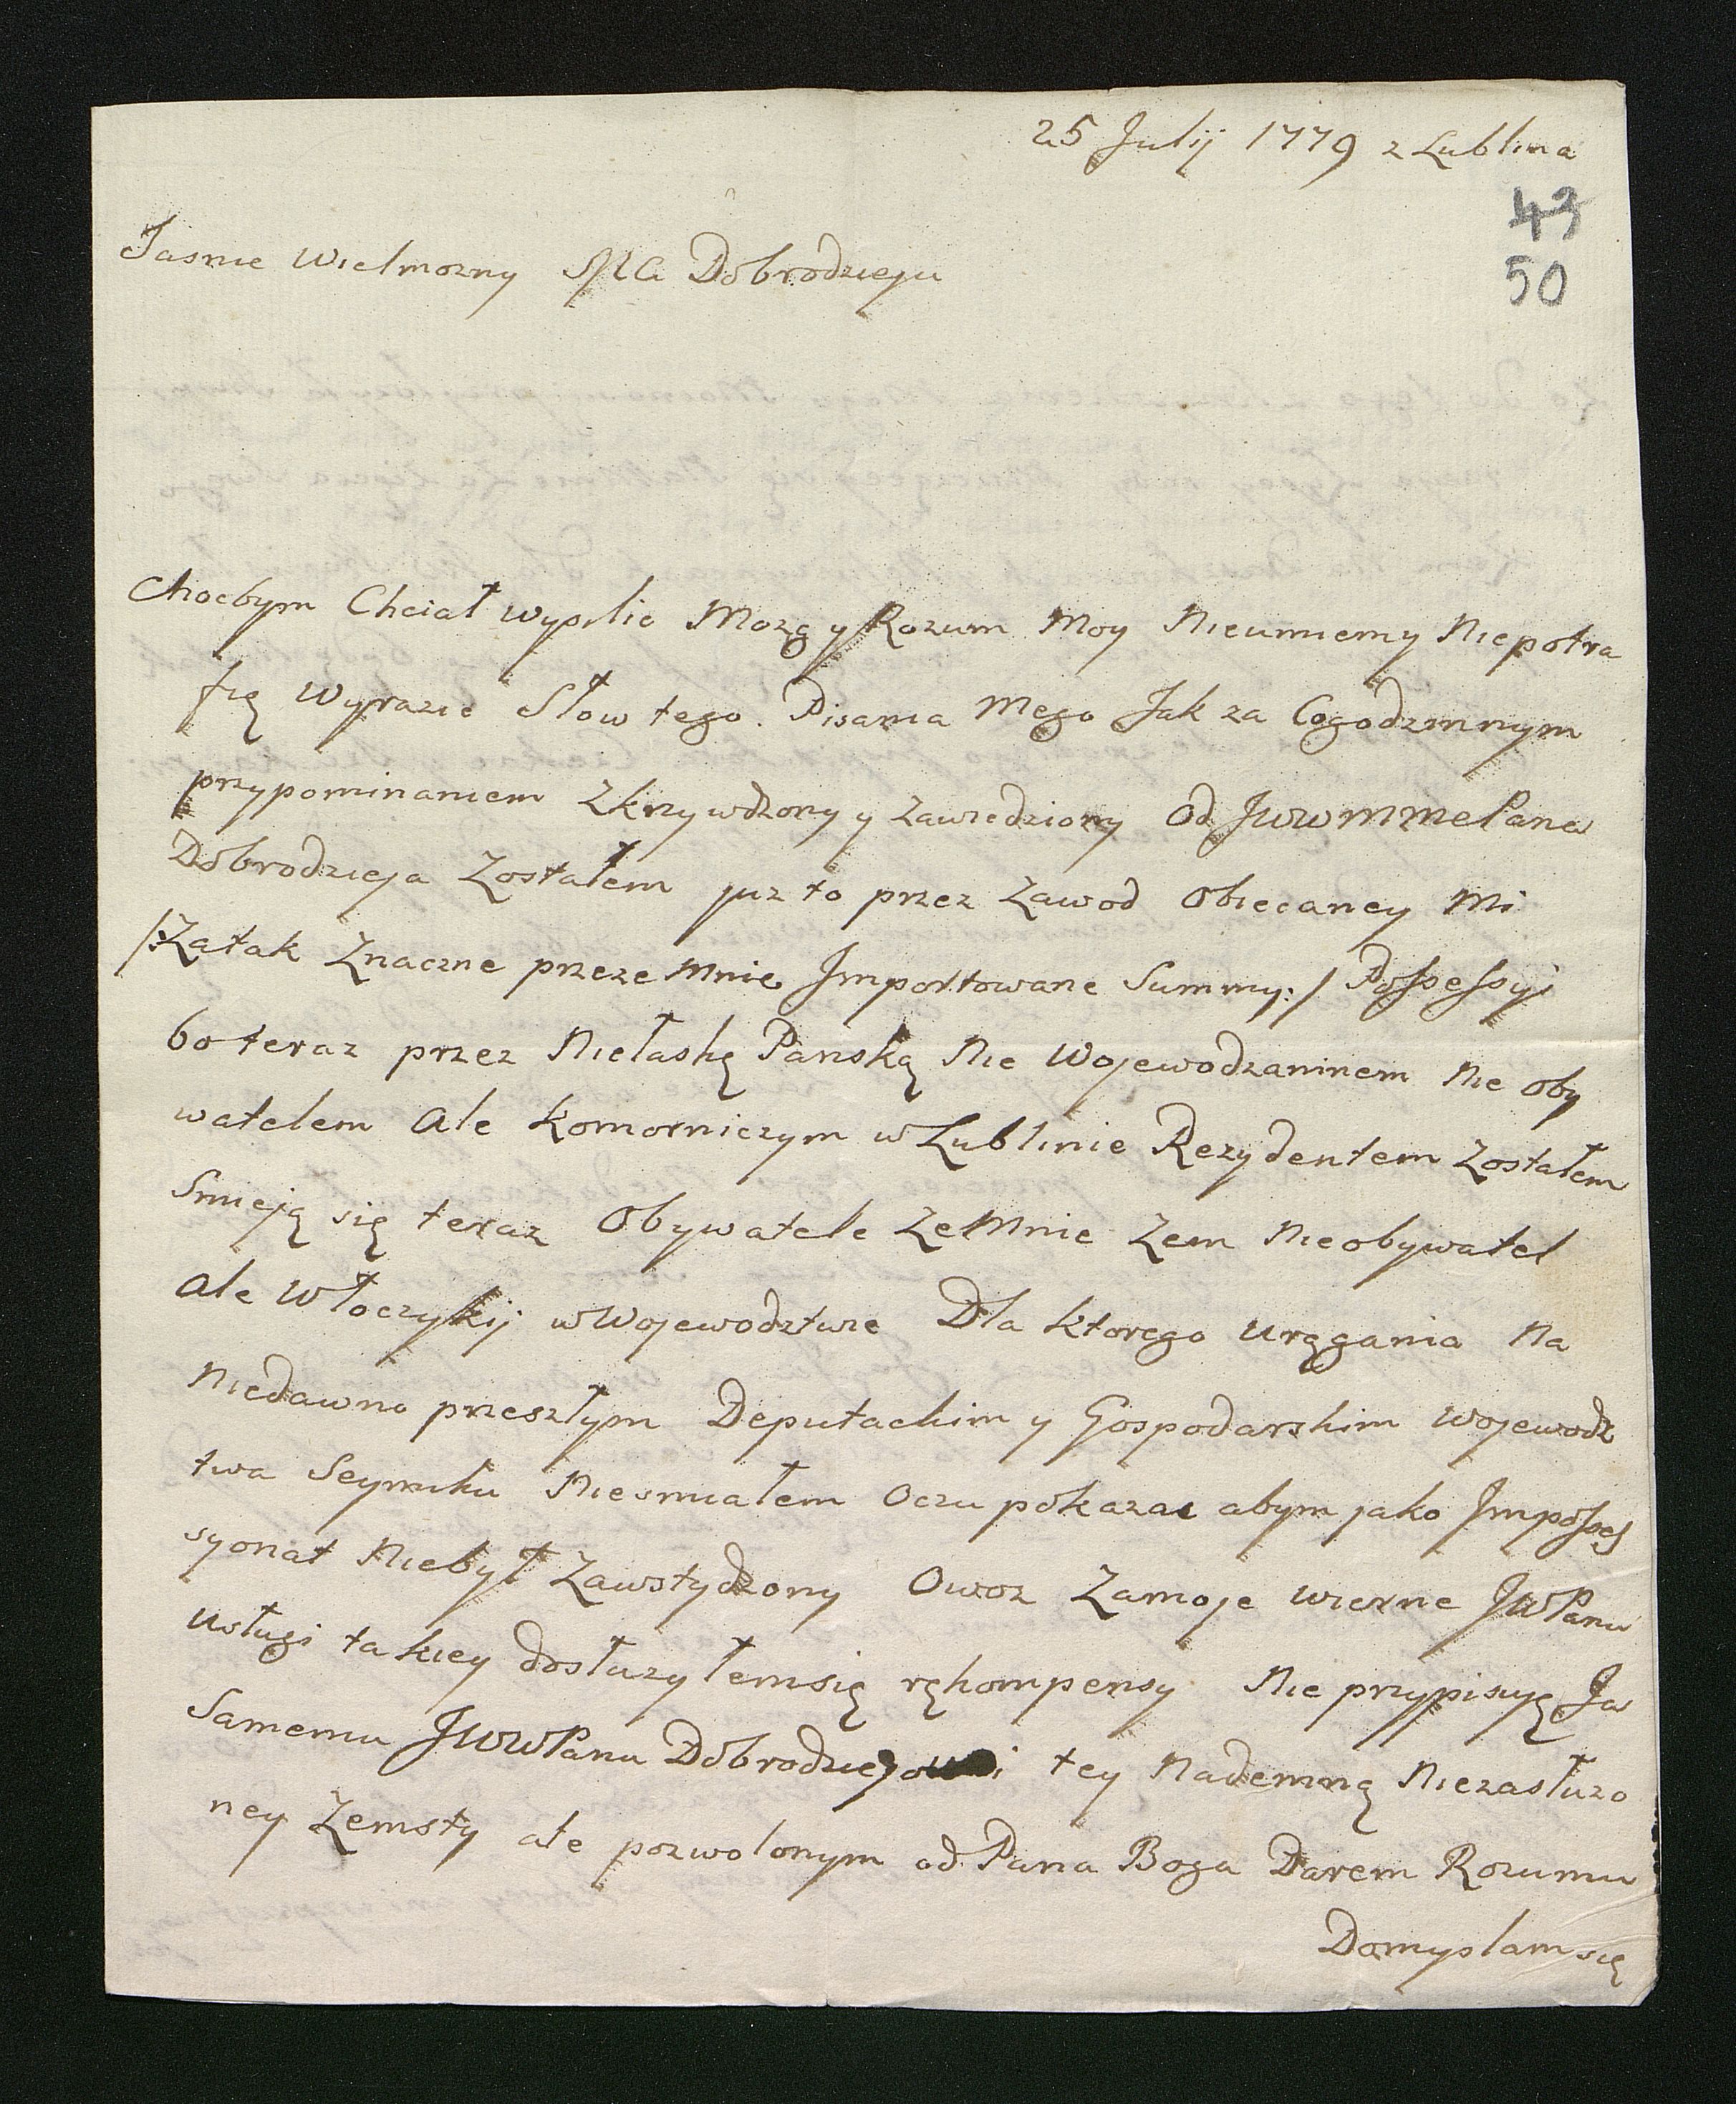 25 Julij 1779 z Lublina
43
50
Jasnie Wielmozny Dobrodzieju
Chocbym Chciał wysilic Mozg y Rozum Moy Nieumiemy Niepotra
fię Wyrazic Słow tego Pisania Mego Jak za Cogodzinnym
przypominaniem Zkrzywdzony y zawiedziony Od JWWMMePana
Dobrodzieja Zostałem juz to przez Zawod Obiecaney Mi
/:Zatak Znaczne przeze Mnie Importowane Summy:/ Possessyi
bo teraz przez Niełaskę Panską Nie Wojewodzaninem Nie Oby
watelem Ale Komorniczym w Lublinie Rezydentem Zostałem
Smieją się teraz Obywatele Ze Mnie Zem Nieobywatel
Ale Włoczykij w Wojewodztwie Dla ktorego Urągania Na
Niedawno przeszłym Deputackim y Gospodarskim Wojewodz
twa Seymiku Niesmiałem Oczu pokazac abym jako Imposses
syonat Niebył Zawstydzony Owoz Zamoje wierne JWPanu
Usługi takiey dosłuzyłemsię rękompensy Nie przypisuię Ja
Samemu JWWPanu Dobrodziejowi tey Nademną Niezasłuzo
ney Zemsty ale pozwolonym od Pana Boga Darem Rozumu
Domyslam się